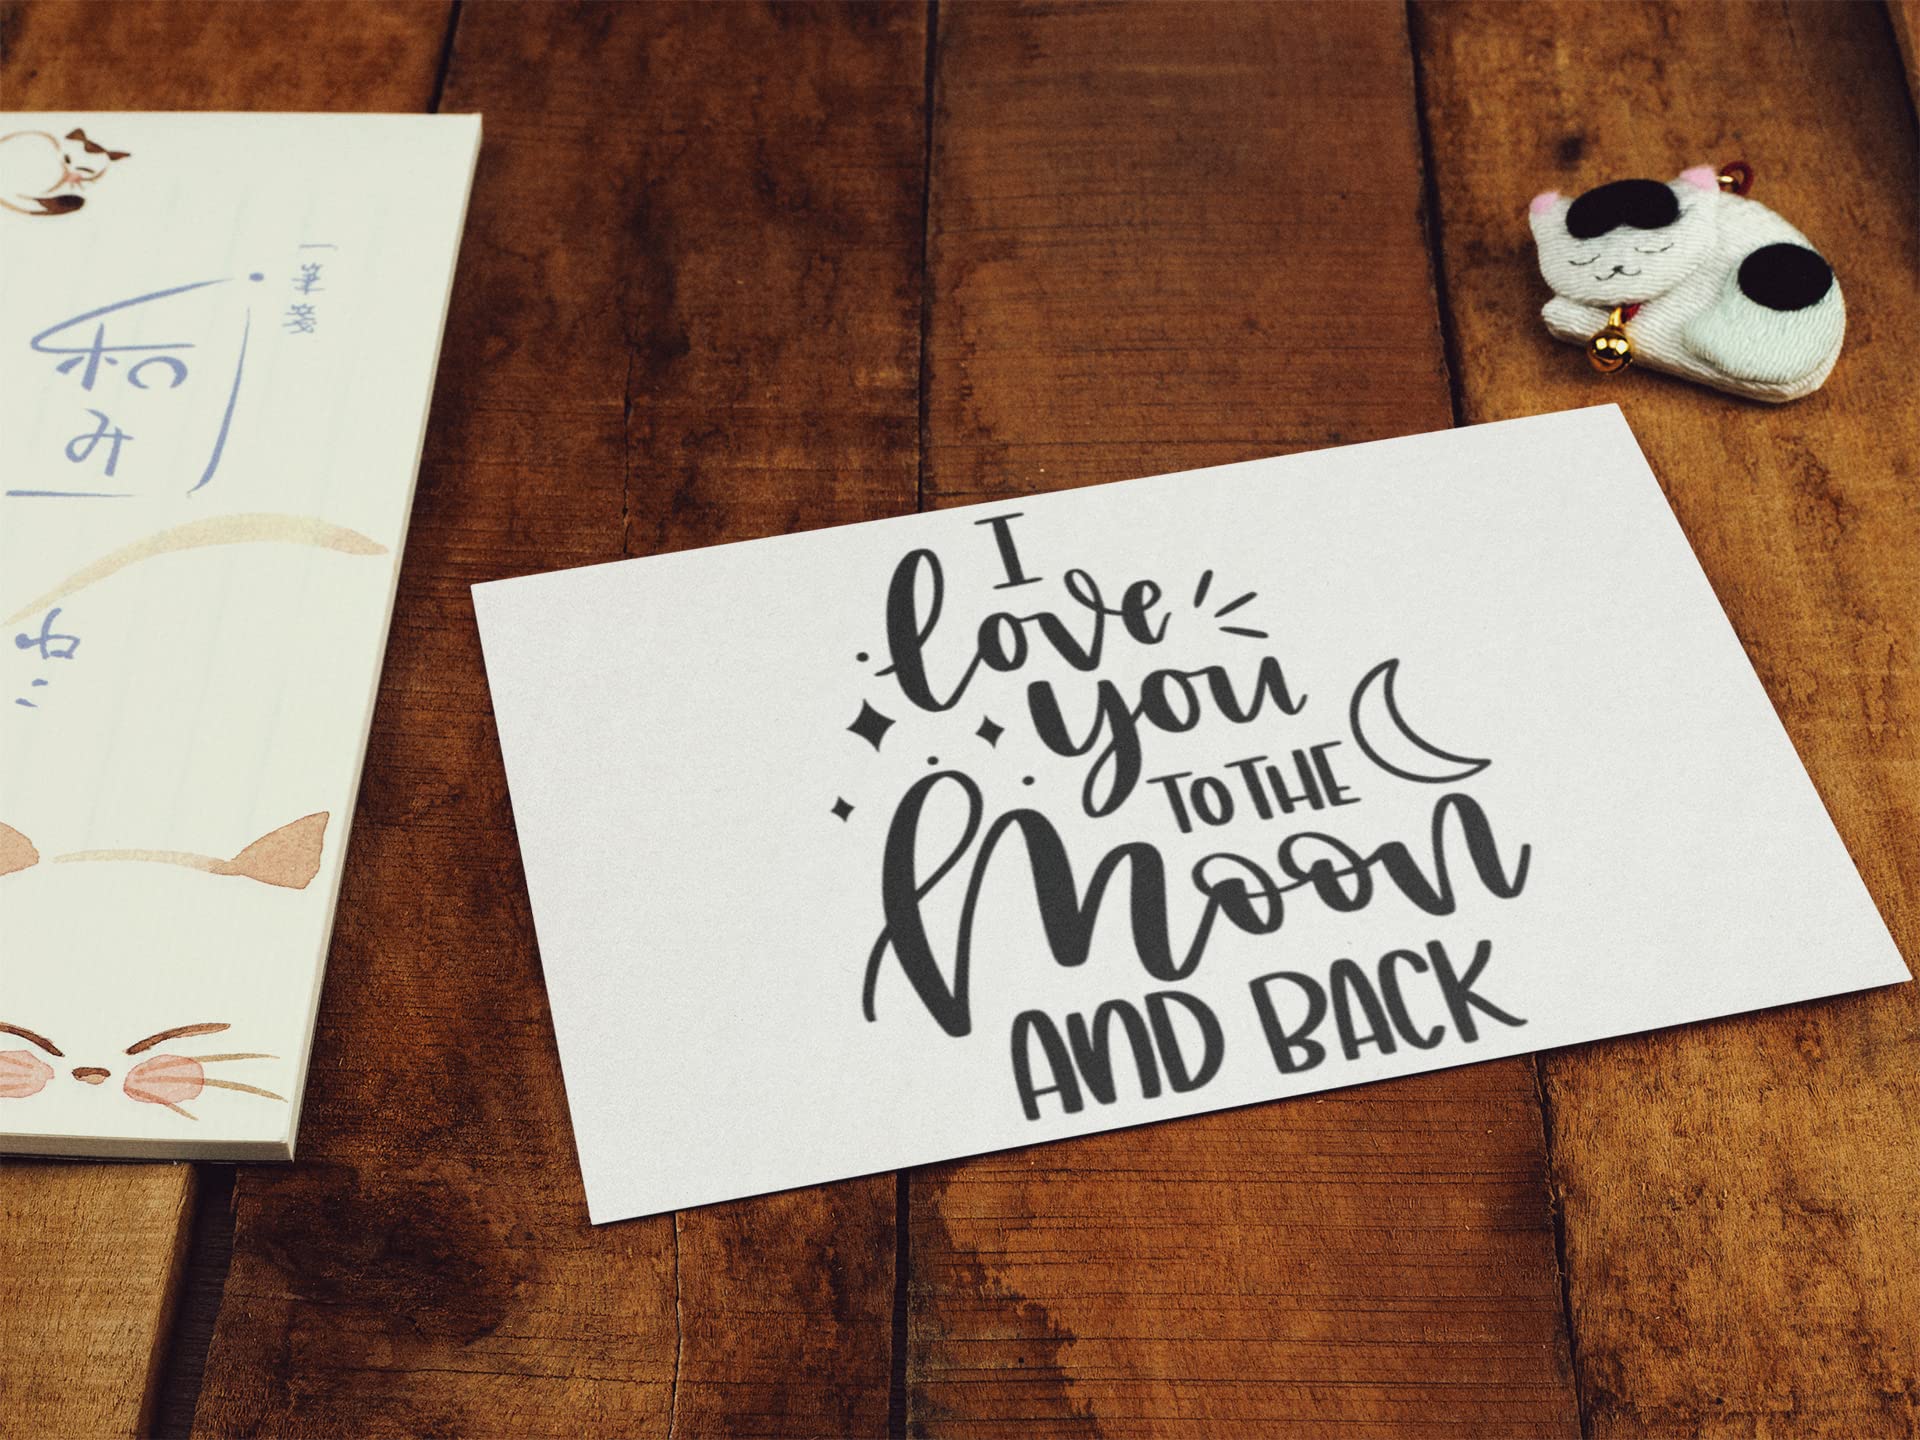 一筆箋
和み
I
love
you
TO THE
Moon
AND BACK